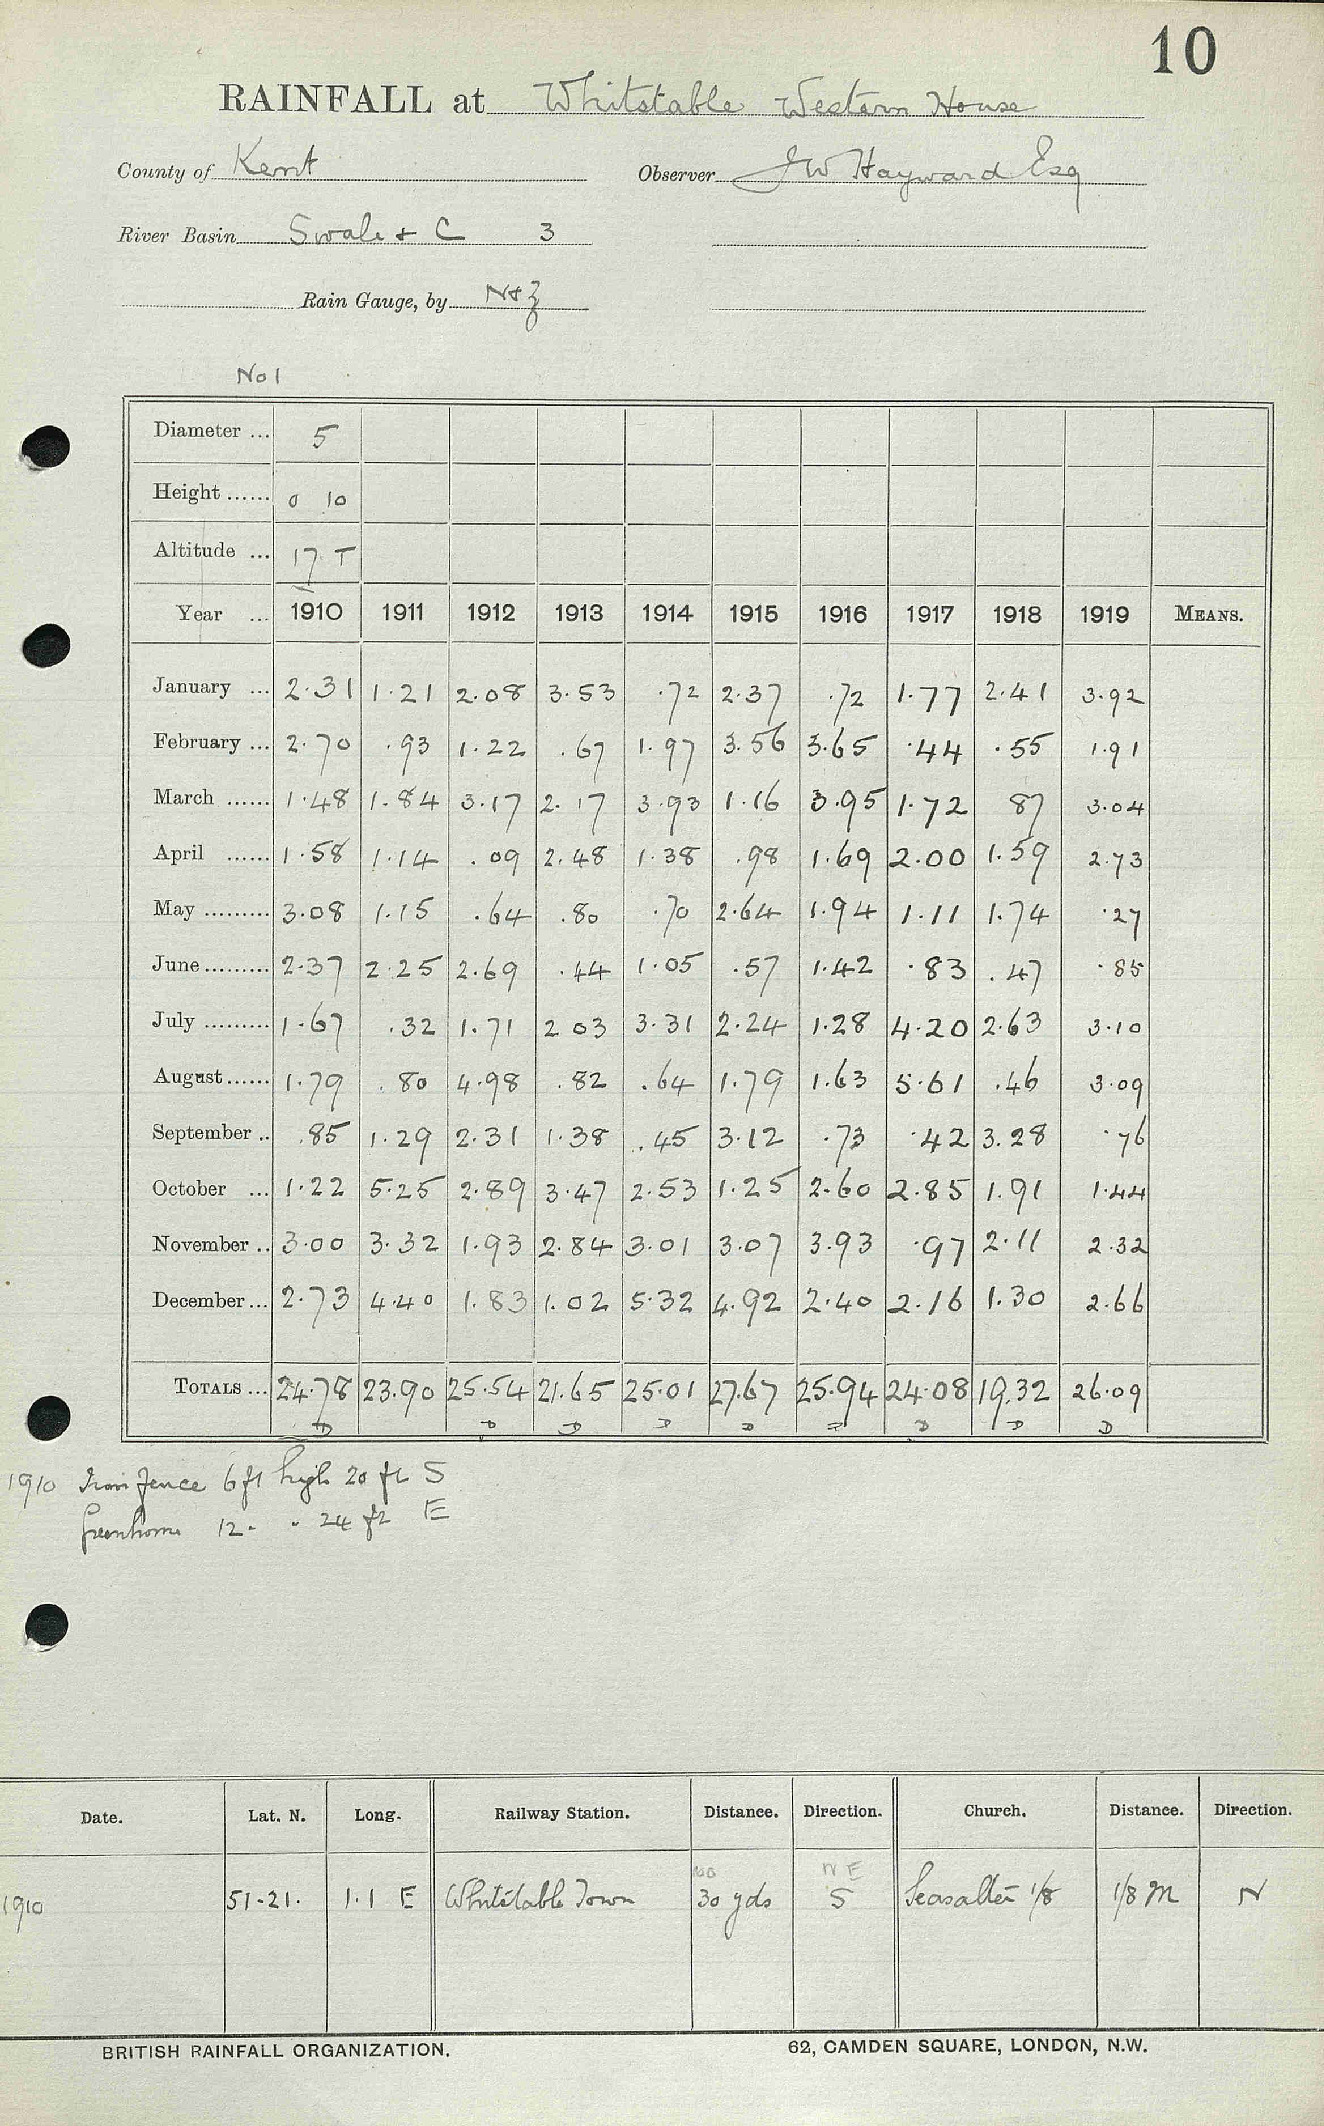 10
RAINFALL at Whitstable Western House
County of Kent Observer J W Hayward Esq
River Basin Swale & C 3
Rain Gauge, by N&Z
No 1
Diameter ... 5
Height ...... 0 10
Altitude ... 17 T
Year ... 1910 1911 1912 1913 1914 1915 1916 1917 1918 1919 MEANS.
January ... 2.31 1.21 2.08 3.53 .72 2.37 .72 1.77 2.41 3.92
February ... 2.70 .93 1.22 .67 1.97 3.56 3.65 .44 .55 1.91
March ...... 1.48 1.84 3.17 2.17 3.93 1.16 3.95 1.72 87 3.04
April ...... 1.58 1.14 .09 2.48 1.38 .98 1.69 2.00 1.59 2.73
May ......... 3.08 1.15 .64 .80 .70 2.64 1.94 1.11 1.74 .27
June ......... 2.37 2.25 2.69 .44 1.05 .57 1.42 .83 .47 .85
July ......... 1.67 .32 1.71 2 03 3.31 2.24 1.28 4.20 2.63 3.10
August ...... 1.79 .80 4.98 .82 .64 1.79 1.63 5.61 .46 3.09
September .. .85 1.29 2.31 1.38 .45 3.12 .73 .42 3.28 .76
October ... 1.22 5.25 2.89 3.47 2.53 1.25 2.60 2.85 1.91 1.44
November .. 3.00 3.32 1.93 2.84 3.01 3.07 3.93 .97 2.11 2.32
December ... 2.73 4.40 1.83 1.02 5.32 4.92 2.40 2.16 1.30 2.66
TOTALS ... 24.78 23.90 25.54 21.65 25.01 27.67 25.94 24.08 19.32 26.09
D D D D D D D D D
1910 Iron fence 6 ft high 20 ft S
Greenhouse 12 " " 24 ft E
Date. Lat. N. Long. Railway Station. Distance. Direction. Church. Distance. Direction.
N E
1910 51.21. 1.1 E Whitstable Town 30 yds S Seasalter 1/8 1/8 M N
BRITISH RAINFALL ORGANIZATION. 62, CAMDEN SQUARE, LONDON, N.W.